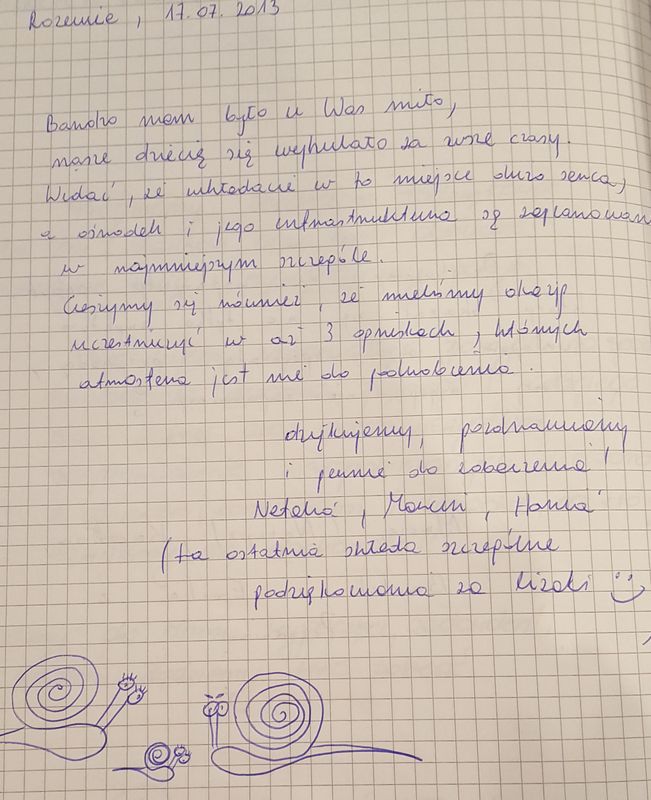 Rozewie, 17.07.2013
Bardzo nam było u Was miło,
nasze dziecię się wyhulało za wsze czasy.
Widać, że wkładacie w to miejsce dużo serca,
a ośrodek i jego infrastruktura są zaplanowan
w najmniejszym szczególe.
Cieszymy się również, że mieliśmy okazję
uczestniczyć w aż 3 ogniskach, których
atmosfera jest nie do podrobienia.
dziękujemy, pozdrawiamy
i pewnie do zobaczenia!
Natalia, Marcin, Hania
(ta ostatnia składa szczególne
podziękowania za lizaki :)